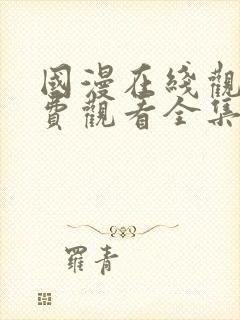 國漫在綫觀
費觀看全集
羅青